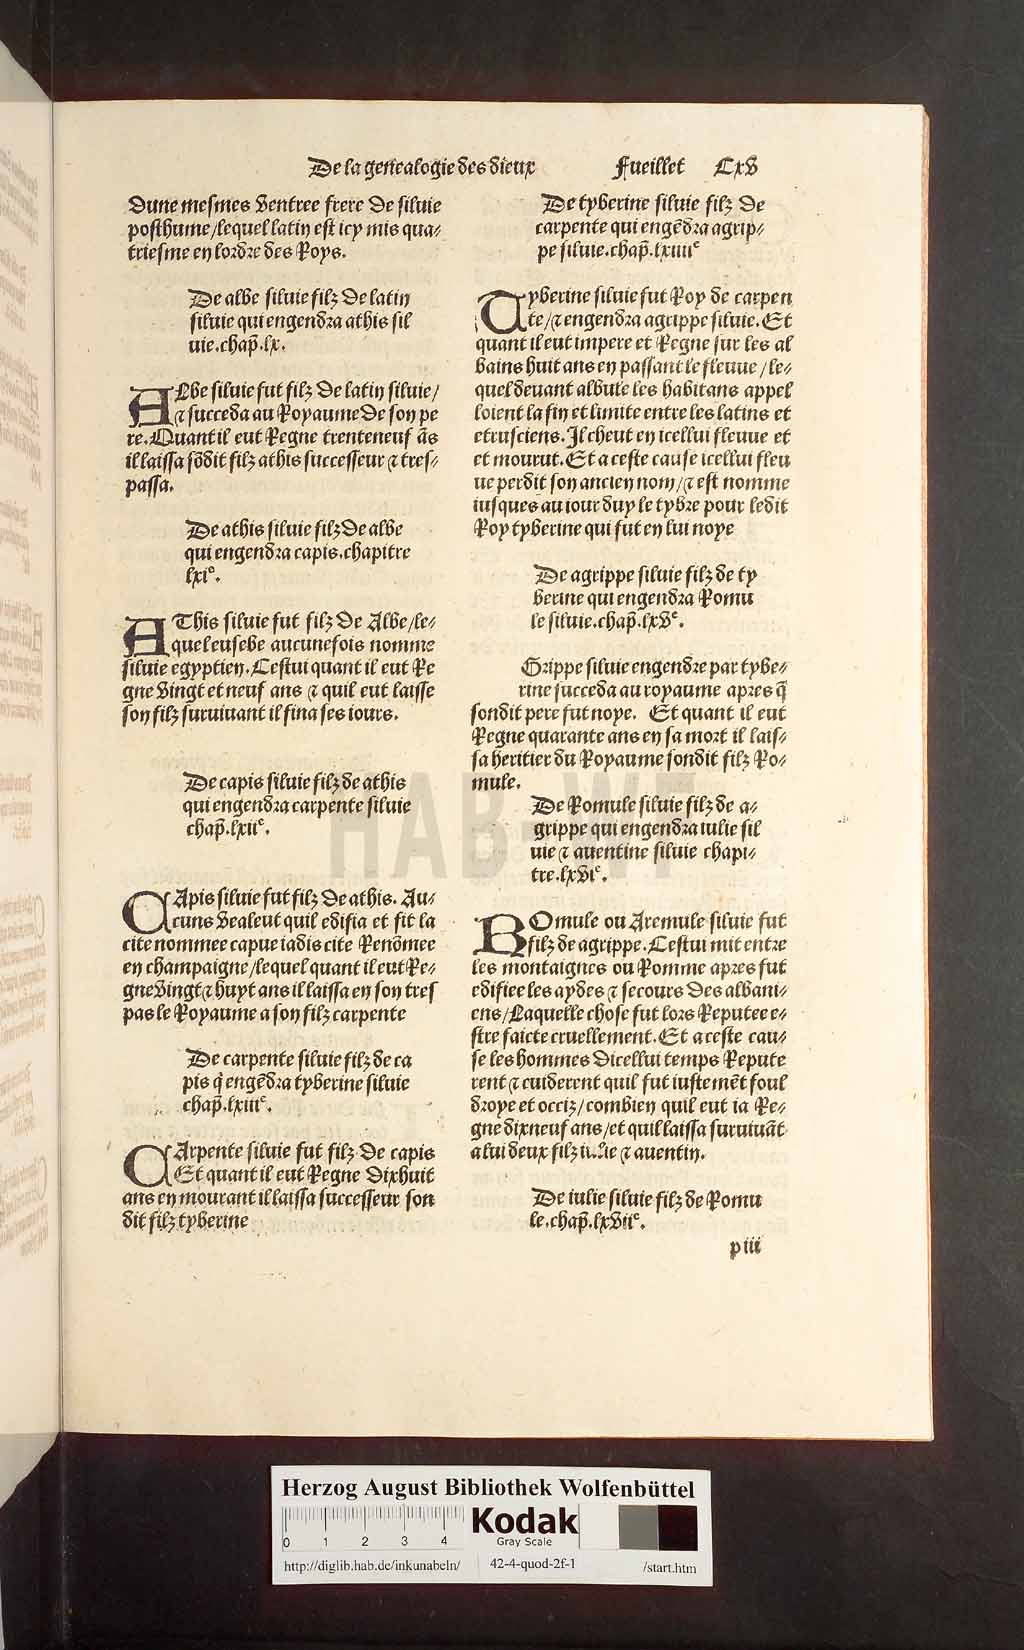 De la genealogie des dieux Fueillet Cxv
dune mesmes ventree frere de siluie
posthume/lequel latin est icy mis qua-
triesme en lordre des Roys.
De albe siluie filz de latin
siluie qui engendra athis sil
uie.chap̃.lx.
ALbe siluie fut filz de latin siluie/
⁊ succeda au Royaume de son pe
re.Quant il eut Regne trenteneuf ãs
il laissa sõdit filz athis successeur ⁊ tres-
passa.
De athis siluie filz de albe
qui engendra capis.chapitre
lxiᵉ.
AThis siluie fut filz de Albe/le-
quel eusebe aucunefois nomme
siluie egyptien.Cestui quant il eut Re
gne vingt et neuf ans ⁊ quil eut laisse
son filz suruiuant il fina ses iours.
De capis siluie filz de athis
qui engendra carpente siluie
chap̃.lxiiᵉ.
CApis siluie fut filz de athis. Au-
cuns vealeut quil edifia et fit la
cite nommee capue iadis cite Renõmee
en champaigne/lequel quant il eut Re-
gne vingt ⁊ huyt ans il laissa en son tres
pas le Royaume a son filz carpente
De carpente siluie filz de ca
pis q̃ engẽdra tyberine siluie
chap̃.lxiiiᵉ.
CArpente siluie fut filz de capis
Et quant il eut Regne dixhuit
ans en mourant il laissa successeur son
dit filz tyberine
De tyberine siluie filz de
carpente qui engẽdra agrip-
pe siluie.chap̃.lxiiiiᵉ
Tyberine siluie fut Roy de carpen
te/⁊ engendra agrippe siluie. Et
quant il eut impere et Regne sur les al
bains huit ans en passant le fleuue/le-
quel deuant albule les habitans appel
loient la fin et limite entre les latins et
etrusciens. Il cheut en icellui fleuue et
et mourut. Et a ceste cause icellui fleu
ue perdit son ancien nom/⁊ est nomme
iusques au iour duy le tybre pour ledit
Roy tyberine qui fut en lui noye
De agrippe siluie filz de ty
berine qui engendra Romu
le siluie.chap̃.lxvᵉ.
Grippe siluie engendre par tybe-
rine succeda au royaume apres q̃
sondit pere fut noye. Et quant il eut
Regne quarante ans en sa mort il lais-
sa heritier du Royaume sondit filz Ro-
mule.
De Romule siluie filz de a-
grippe qui engendra iulie sil
uie ⁊ auentine siluie chapi-
tre.lxviᵉ.
ROmule ou Aremule siluie fut
filz de agrippe. Cestui mit entre
les montaignes ou Romme apres fut
edifiee les aydes ⁊ secours des albani-
ens/Laquelle chose fut lors Reputee e-
stre faicte cruellement. Et a ceste cau-
se les hommes dicellui temps Repute
rent ⁊ cuiderent quil fut iustemẽt foul
droye et occiz/combien quil eut ia Re-
gne dixneuf ans/et quil laissa suruiuãt
a lui deux filz iulie ⁊ auentin.
De iulie siluie filz de Romu
le.chap̃.lxviiᵉ.
p iii
HAB-WF
Herzog August Bibliothek Wolfenbüttel
0 1 2 3 4
Kodak
Gray Scale
http://diglib.hab.de/inkunabeln/ 42-4-quod-2f-1 /start.htm